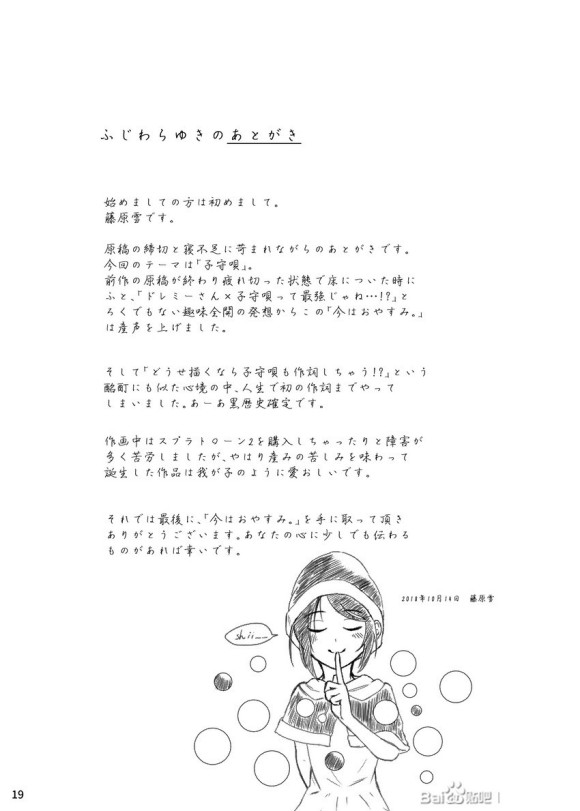 ふじわらゆきのあとがき
始めましての方は初めまして。
藤原雪です。
原稿の締切と寝不足に苛まれながらのあとがきです。
今回のテーマは「子守唄」。
前作の原稿が終わり疲れ切った状態で床についた時に
ふと、「ドレミーさん×子守唄って最強じゃね…!?」と
ろくでもない趣味全開の発想からこの「今はおやすみ。」
は産声を上げました。
そして「どうせ描くなら子守唄も作詞しちゃう!?」という
酩酊にも似た心境の中、人生で初の作詞までやって
しまいました。あーあ黒歴史確定です。
作画中はスプラトゥーン2を購入しちゃったりと障害が
多く苦労しましたが、やはり産みの苦しみを味わって
誕生した作品は我が子のように愛おしいです。
それでは最後に、「今はおやすみ。」を手に取って頂き
ありがとうございます。あなたの心に少しでも伝わる
ものがあれば幸いです。
2018年10月14日 藤原雪
shii__
19
Bai贴吧